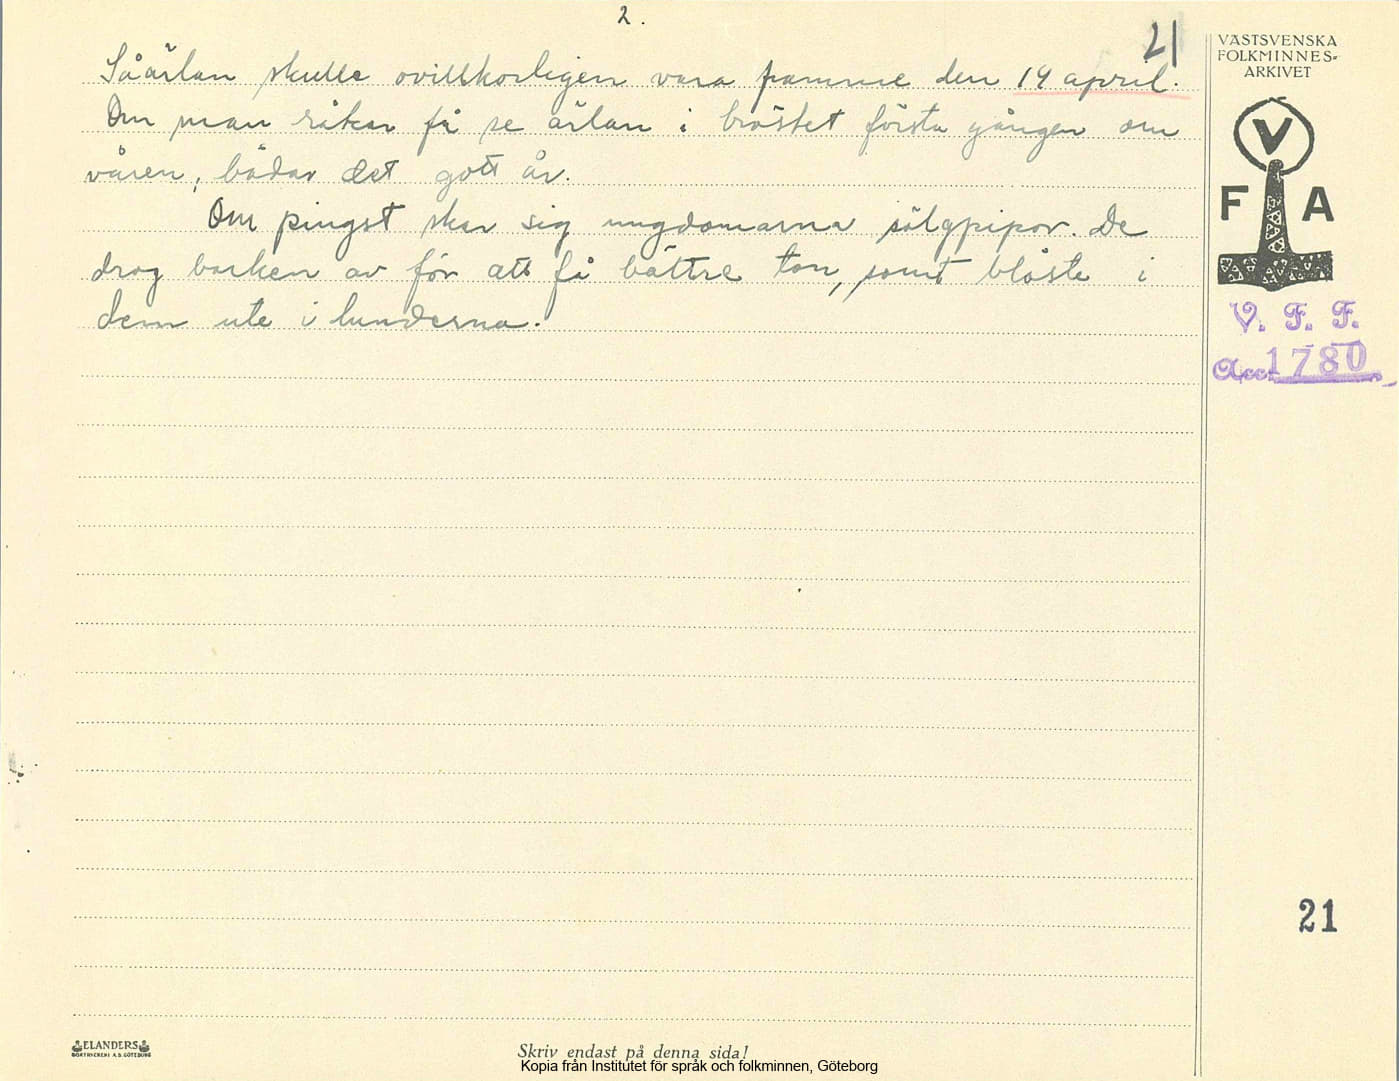 2.
21
Såärlan skulle ovillkorligen vara framme den 14 april.
Om man råkar få se ärlan i bröstet första gången om
våren, bådar det gott år.
Om pingst skar sig ungdomarna sälgpipor. De
drog barken av för att få bättre ton, samt blåste i
dem ute i lunderna.
VÄSTSVENSKA
FOLKMINNES-
ARKIVET
V
F A
V. F. F.
Acc. 1780
21
ELANDERS
BOKTRYCKERI A.B. GÖTEBORG
Skriv endast på denna sida!
Kopia från Institutet för språk och folkminnen, Göteborg